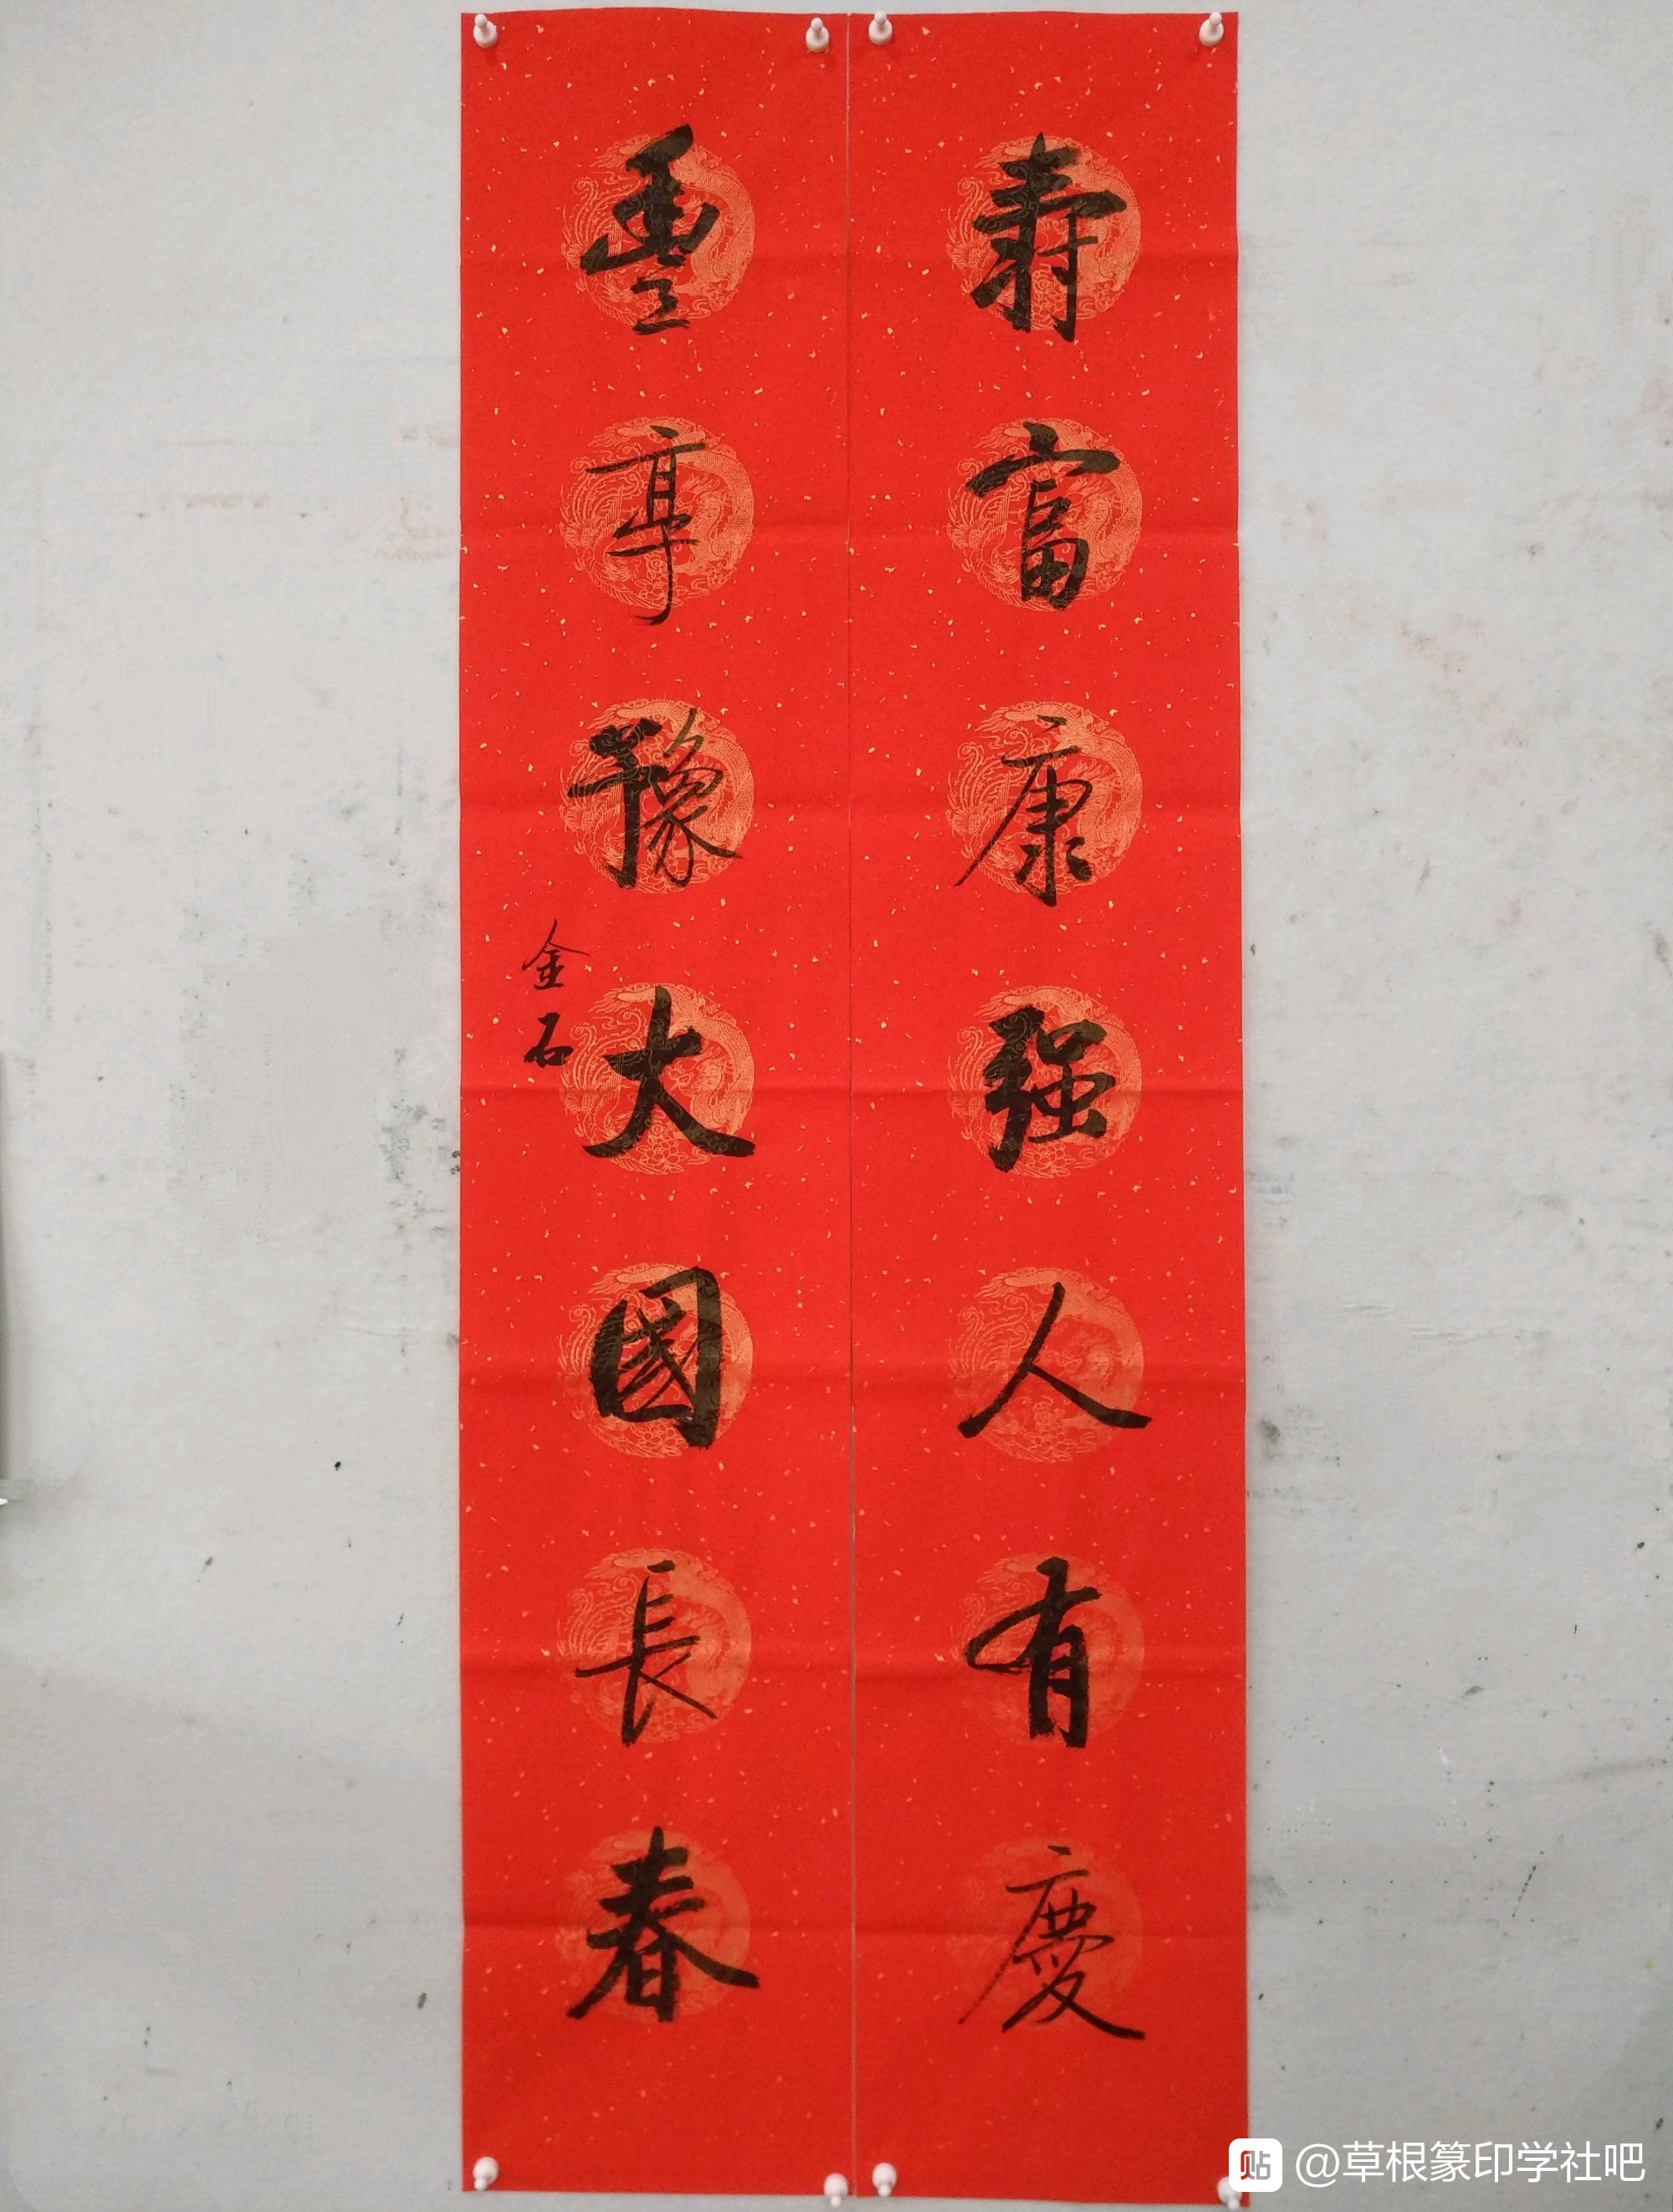 壽富康强人有慶
豐亨豫大國長春
金石
贴 @草根篆印学社吧